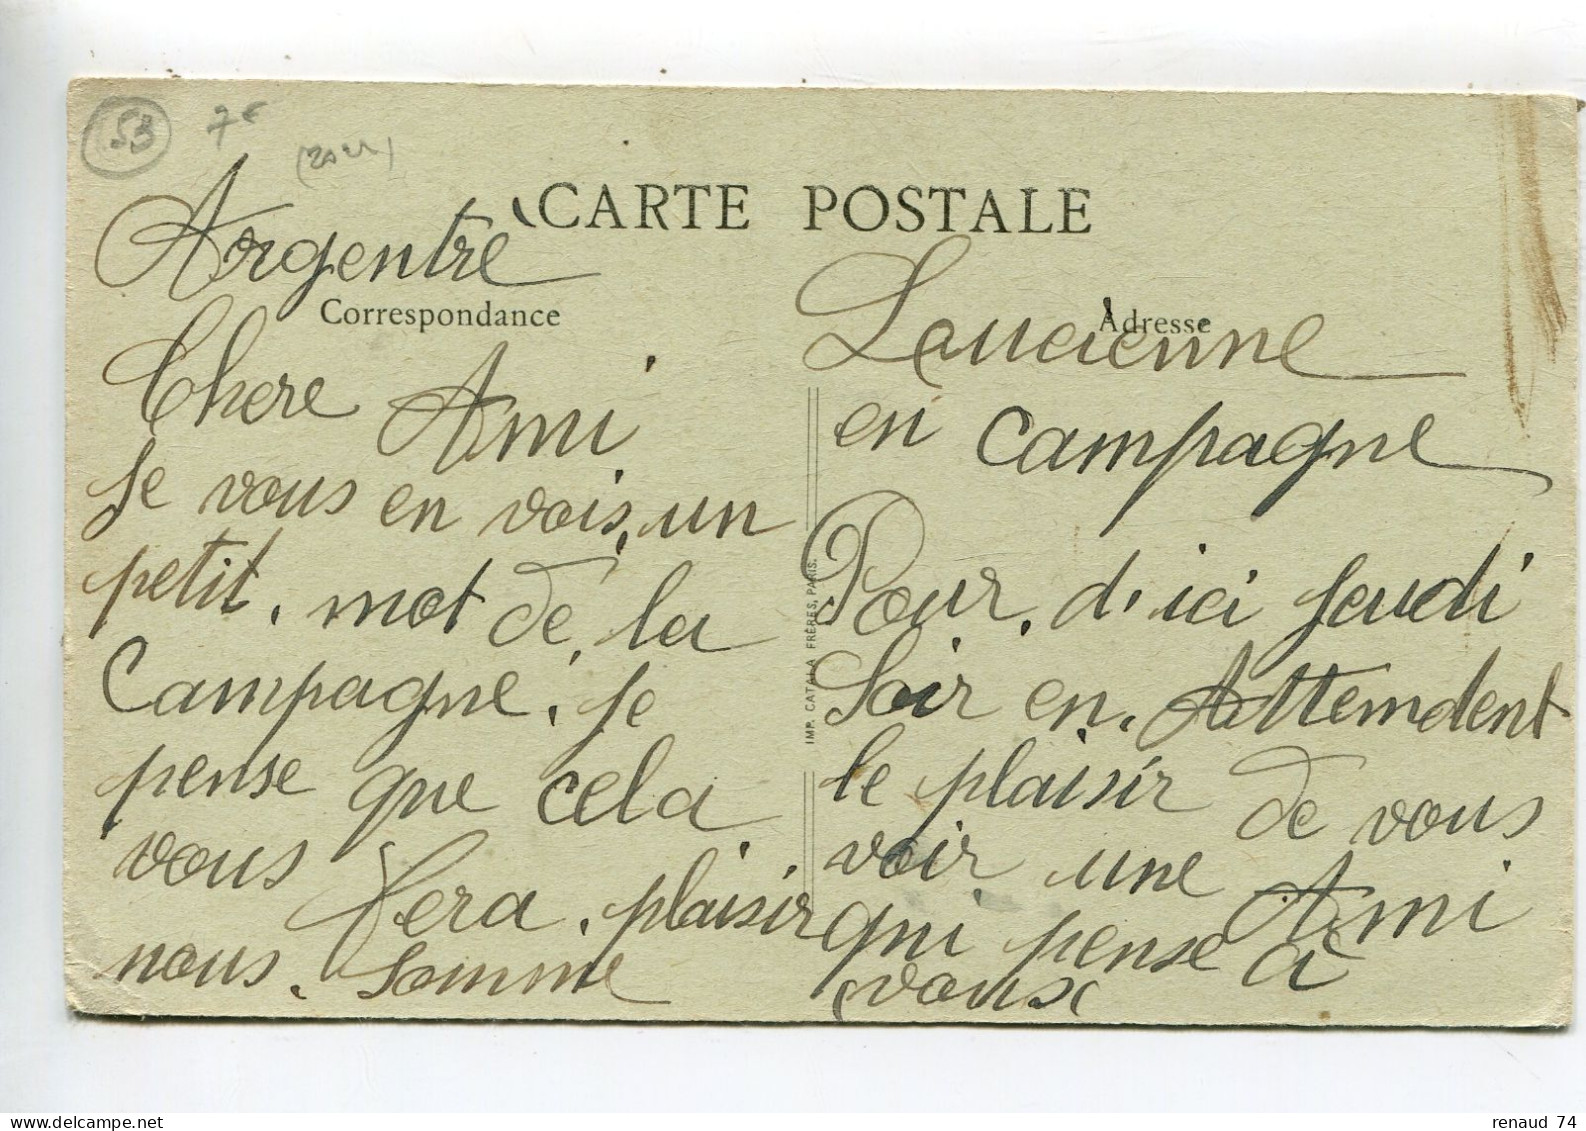 53 7€
CARTE POSTALE
Argentre
Correspondance
Chere Ami
Je vous en vois, un
petit. mot de, la
Campagne, Je
pense que cela
vous
fera. plaisir
nous. somme
IMP. CATALA FRÈRES, PARIS.
Adresse
Loucienne
en campagne
Pour. d'ici Jeudi
Soir en. Attemdent
le plaisir de vous
voir une Ami
qui pense à
vous
renaud 74